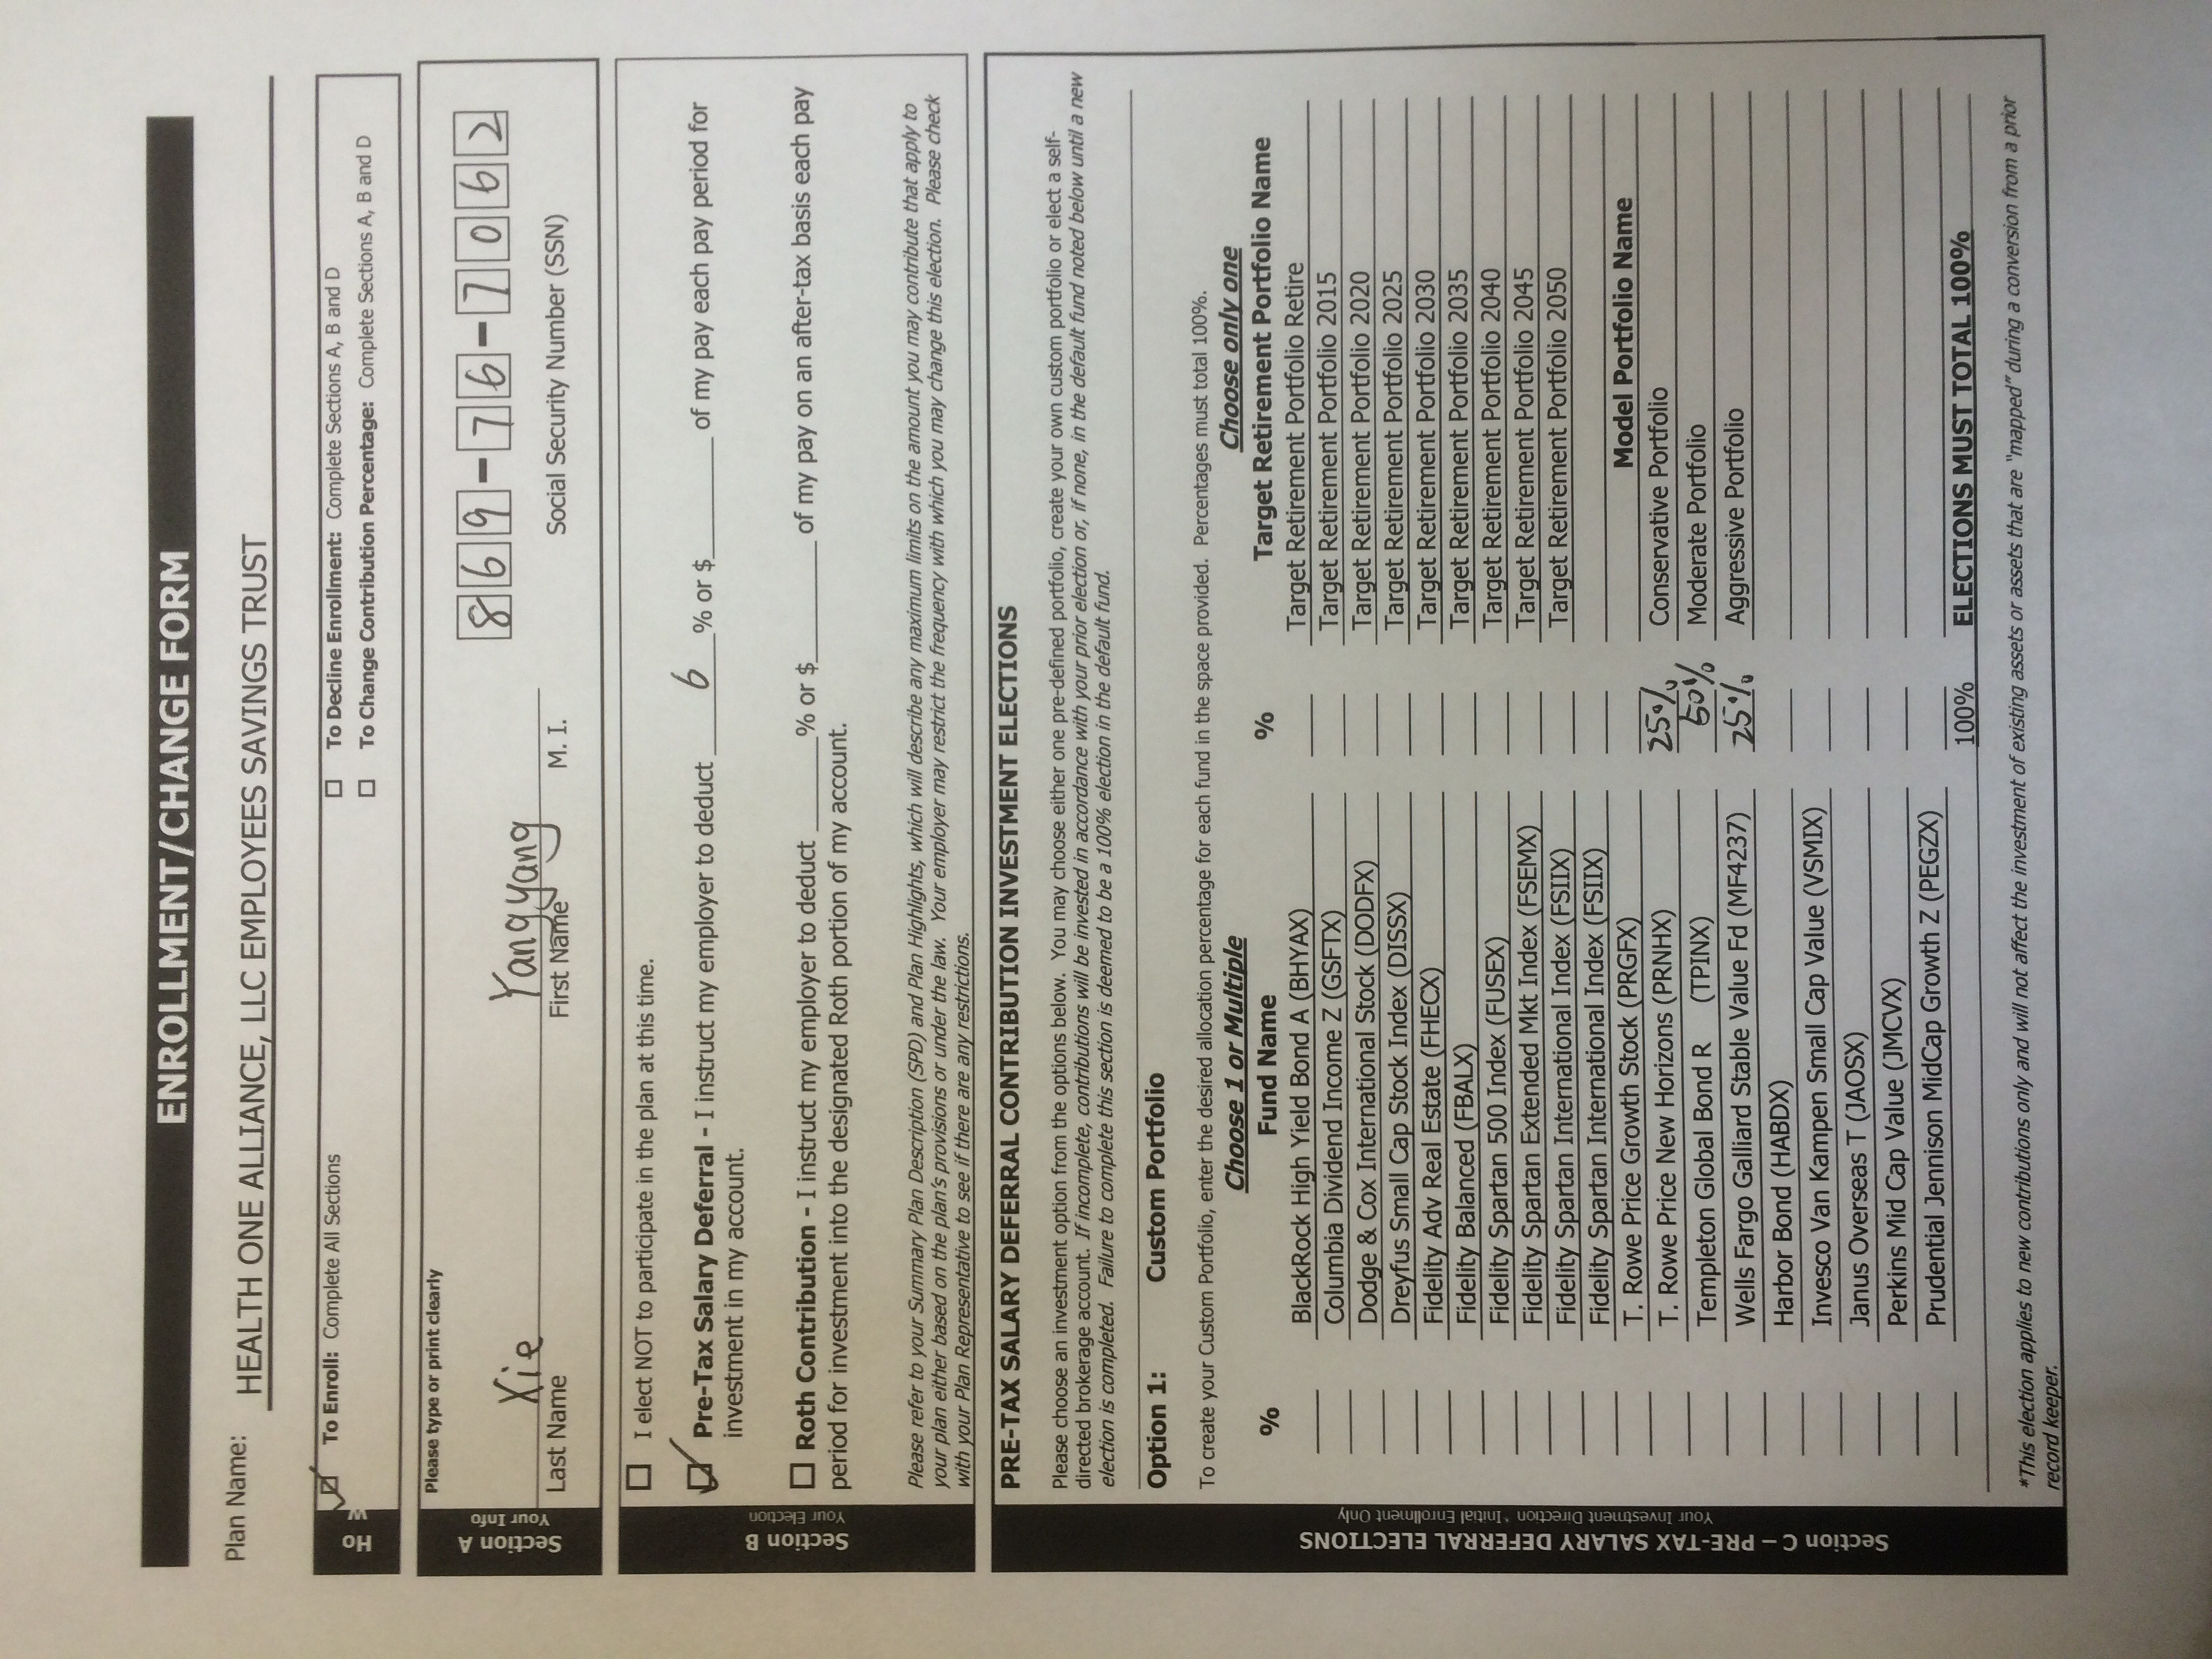 ENROLLMENT/CHANGE FORM
Plan Name: HEALTH ONE ALLIANCE, LLC EMPLOYEES SAVINGS TRUST
Ho
w
To Enroll: Complete All Sections
To Decline Enrollment: Complete Sections A, B and D
To Change Contribution Percentage: Complete Sections A, B and D
Section A
Your Info
Please type or print clearly
Xie Yangyang 869-76-7062
Last Name First Name M. I. Social Security Number (SSN)
Section B
Your Election
I elect NOT to participate in the plan at this time.
Pre-Tax Salary Deferral - I instruct my employer to deduct 6 % or $ of my pay each pay period for
investment in my account.
Roth Contribution - I instruct my employer to deduct % or $ of my pay on an after-tax basis each pay
period for investment into the designated Roth portion of my account.
Please refer to your Summary Plan Description (SPD) and Plan Highlights, which will describe any maximum limits on the amount you may contribute that apply to
your plan either based on the plan's provisions or under the law. Your employer may restrict the frequency with which you may change this election. Please check
with your Plan Representative to see if there are any restrictions.
Section C – PRE-TAX SALARY DEFERRAL ELECTIONS
Your Investment Direction *Initial Enrollment Only
PRE-TAX SALARY DEFERRAL CONTRIBUTION INVESTMENT ELECTIONS
Please choose an investment option from the options below. You may choose either one pre-defined portfolio, create your own custom portfolio or elect a self-
directed brokerage account. If incomplete, contributions will be invested in accordance with your prior election or, if none, in the default fund noted below until a new
election is completed. Failure to complete this section is deemed to be a 100% election in the default fund.
Option 1: Custom Portfolio
To create your Custom Portfolio, enter the desired allocation percentage for each fund in the space provided. Percentages must total 100%.
Choose 1 or Multiple Choose only one
% Fund Name % Target Retirement Portfolio Name
BlackRock High Yield Bond A (BHYAX) Target Retirement Portfolio Retire
Columbia Dividend Income Z (GSFTX) Target Retirement Portfolio 2015
Dodge & Cox International Stock (DODFX) Target Retirement Portfolio 2020
Dreyfus Small Cap Stock Index (DISSX) Target Retirement Portfolio 2025
Fidelity Adv Real Estate (FHECX) Target Retirement Portfolio 2030
Fidelity Balanced (FBALX) Target Retirement Portfolio 2035
Fidelity Spartan 500 Index (FUSEX) Target Retirement Portfolio 2040
Fidelity Spartan Extended Mkt Index (FSEMX) Target Retirement Portfolio 2045
Fidelity Spartan International Index (FSIIX) Target Retirement Portfolio 2050
Fidelity Spartan International Index (FSIIX)
T. Rowe Price Growth Stock (PRGFX) Model Portfolio Name
T. Rowe Price New Horizons (PRNHX) 25% Conservative Portfolio
Templeton Global Bond R (TPINX) 50% Moderate Portfolio
Wells Fargo Galliard Stable Value Fd (MF4237) 25% Aggressive Portfolio
Harbor Bond (HABDX)
Invesco Van Kampen Small Cap Value (VSMIX)
Janus Overseas T (JAOSX)
Perkins Mid Cap Value (JMCVX)
Prudential Jennison MidCap Growth Z (PEGZX)
100% ELECTIONS MUST TOTAL 100%
*This election applies to new contributions only and will not affect the investment of existing assets or assets that are "mapped" during a conversion from a prior
record keeper.